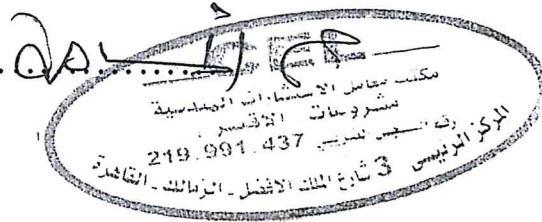 مكتب معامل الاستشارات الهندسية
مشروعات الأقصر
رقم التسجيل الضريبي 219.991.437
المركز الرئيسي 3 شارع الملك الافضل - الزمالك - القاهرة